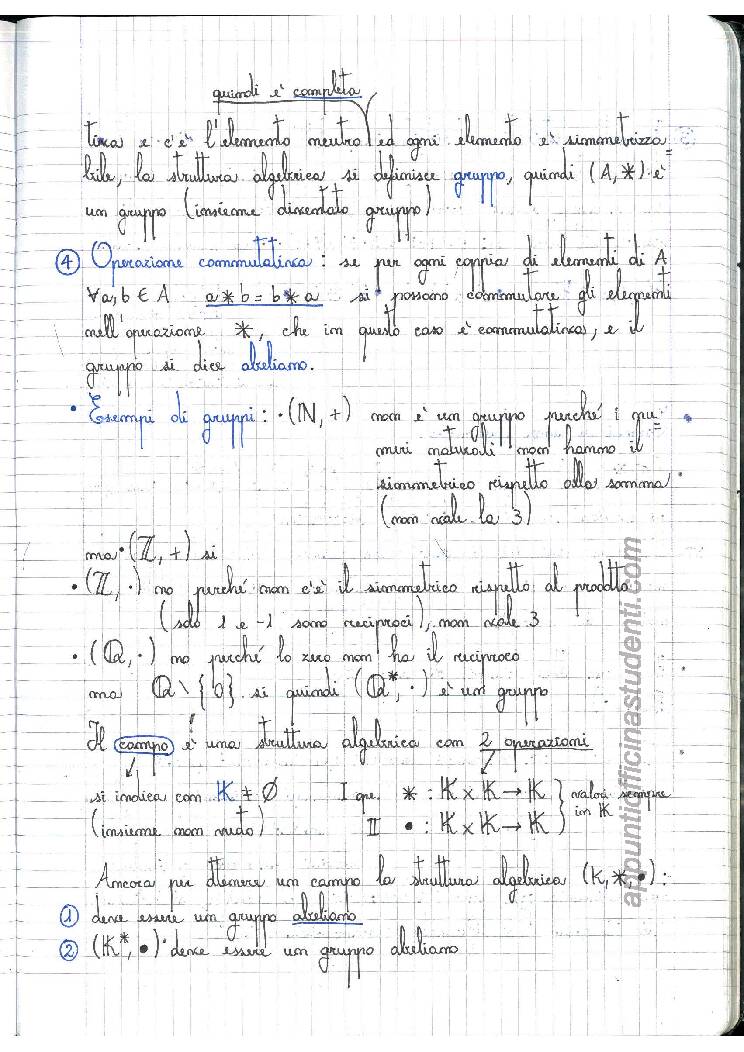 quindi è completa
tiva e c'è l'elemento neutro ed ogni elemento è simmetrizza=
bile, la struttura algebrica si definisce gruppo, quindi (A, *) è
un gruppo (insieme diventato gruppo)
④ Operazione commutativa: se per ogni coppia di elementi di A
∀a,b ∈ A a * b = b * a si possono commutare gli elementi
nell'operazione *, che in questo caso è commutativa, e il
gruppo si dice abeliano.
• Esempi di gruppi: • (ℕ, +) non è un gruppo perché i nu=
meri naturali non hanno il
simmetrico rispetto alla somma
(non vale la 3)
ma • (ℤ, +) si
• (ℤ, ·) no perché non c'è il simmetrico rispetto al prodotto
(solo 1 e -1 sono reciproci), non vale 3
• (ℚ, ·) no perché lo zero non ha il reciproco
ma ℚ \ {0} si quindi (ℚ*, ·) è un gruppo
Il campo è una struttura algebrica con 2 operazioni
si indica con 𝕂 ≠ ∅ I ope. * : 𝕂 x 𝕂 → 𝕂 } valori sempre
(insieme non vuoto) II • : 𝕂 x 𝕂 → 𝕂 } in 𝕂
Ancora per ottenere un campo la struttura algebrica (K, *, •):
① deve essere un gruppo abeliano
② (𝕂*, •) deve essere un gruppo abeliano
appuntiofficinastudenti.com